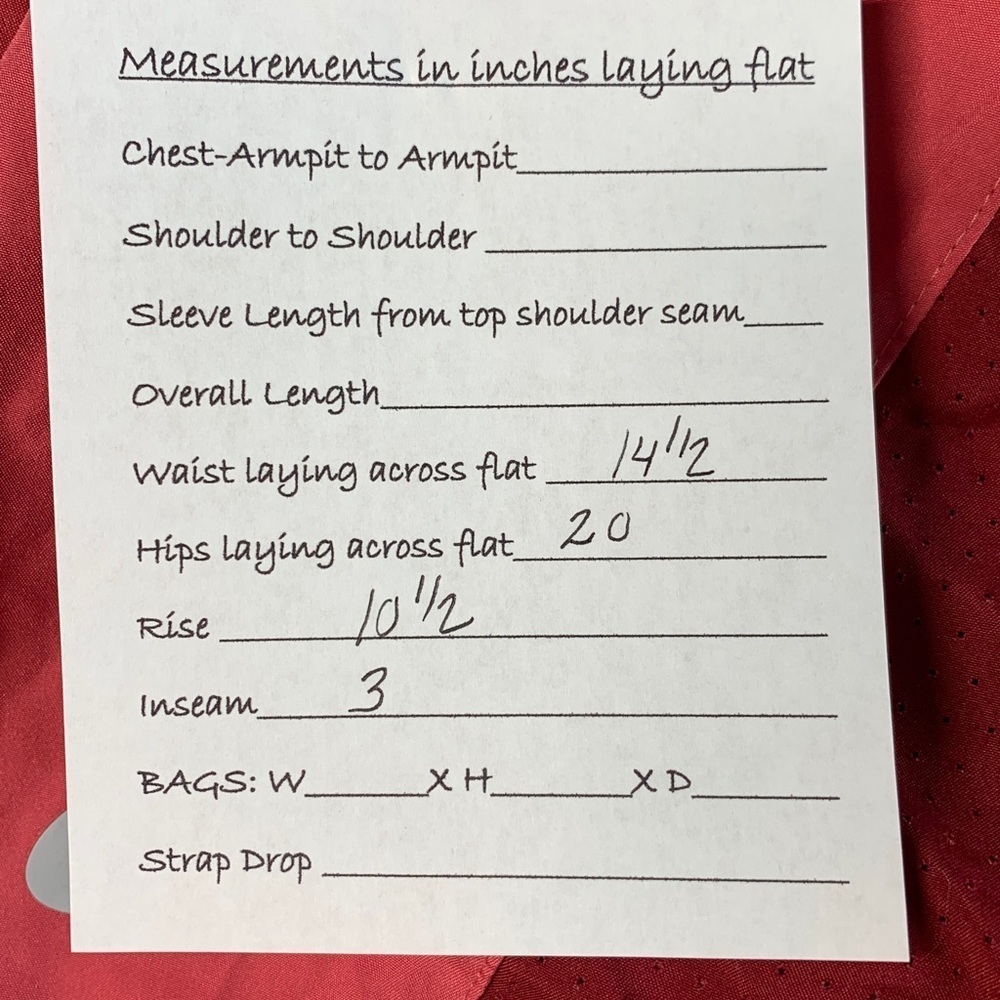 Measurements in inches laying flat
Chest-Armpit to Armpit____________
Shoulder to Shoulder ____________
Sleeve Length from top shoulder seam____
Overall Length____________
Waist laying across flat 14 1/2
Hips laying across flat 20
Rise 10 1/2
Inseam 3
BAGS: W______X H______X D______
Strap Drop ____________